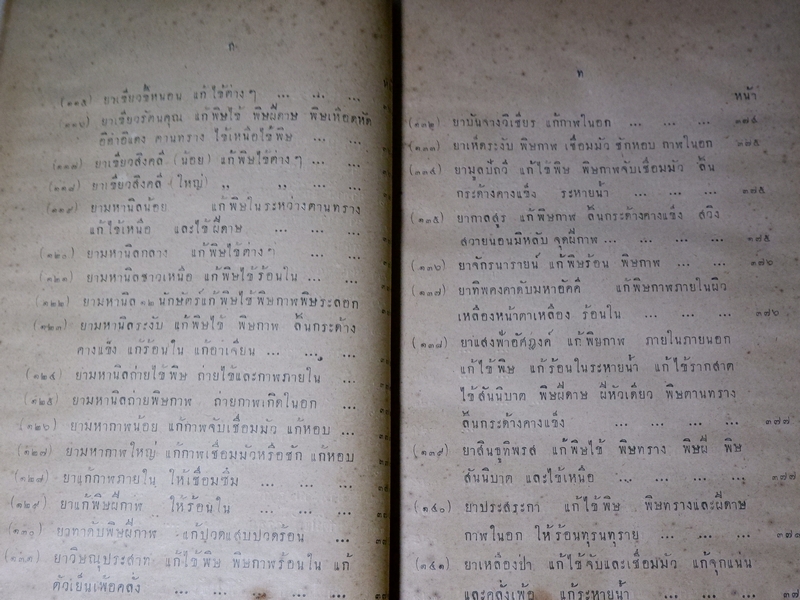 ถ
(๑๑๕) ยาเขียวขี้หนอน แก้ไข้ต่างๆ ... ... ...
(๑๑๖) ยาเขียวรัตนคุณ แก้พิษไข้ พิษฝีดาษ พิษเหือดหัด
อีดำอีแดง ตานทราง ไข้เหนือไข้พิษ ... ...
(๑๑๗) ยาเขียวสังคลี (น้อย) แก้พิษไข้ต่างๆ ... ...
(๑๑๘) ยาเขียวสังคลี (ใหญ่) ,, ,, ... ...
(๑๑๙) ยามหานิลน้อย แก้พิษในระหว่างตานทราง
แก้ไข้เหนือ และไข้ฝีดาษ ... ... ...
(๑๒๐) ยามหานิลกลาง แก้พิษไข้ต่างๆ ... ...
(๑๒๑) ยามหานิลชาวเหนือ แก้พิษไข้ร้อนใน ... ...
(๑๒๒) ยามหานิล ๑๒ นักษัตร์แก้พิษไข้พิษกาฬพิษระลอก
(๑๒๓) ยามหานิลระงับ แก้พิษไข้ พิษกาฬ ลิ้นกระด้าง
คางแข็ง แก้ร้อนใน แก้อาเจียน ... ... ...
(๑๒๔) ยามหานิลถ่ายไข้พิษ ถ่ายไข้และกาฬภายใน ...
(๑๒๕) ยามหานิลถ่ายพิษกาฬ ถ่ายกาฬเกิดในอก ...
(๑๒๖) ยามหากาฬน้อย แก้กาฬจับเชื่อมมัว แก้หอบ ...
(๑๒๗) ยามหากาฬใหญ่ แก้กาฬเชื่อมมัวหรือชัก แก้หอบ
(๑๒๘) ยาแก้กาฬภายใน ให้เชื่อมซึม ... ... ...
(๑๒๙) ยาแก้พิษฝีกาฬ ให้ร้อนใน ... ... ...
(๑๓๐) ยาทาดับพิษฝีกาฬ แก้ปวดแสบปวดร้อน ... ...
(๑๓๑) ยาวิษณุประสาท แก้ไข้พิษ พิษกาฬร้อนใน แก้
ตัวเย็นเพ้อคลั่ง ... ... ... ...
ท
หน้า
(๑๓๒) ยาบันจางวิเชียร แก้กาฬในอก ... ... ... ๓๗๔
(๑๓๓) ยาเห็ดระงับ พิษกาฬ เชื่อมมัว ชักหอบ กาฬในอก ๓๗๕
(๑๓๔) ยามูลปัถวี แก้ไข้พิษ พิษกาฬจับเชื่อมมัว ลิ้น
กระด้างคางแข็ง ระหายน้ำ ... ... ... ๓๗๕
(๑๓๕) ยากาลสูร แก้พิษกาฬ ลิ้นกระด้างคางแข็ง สวิง
สวายนอนมิหลับ จุดฝีกาฬ ... ... ... ... ๓๗๕
(๑๓๖) ยาจักรนารายน์ แก้พิษร้อน พิษกาฬ ... ... ๓๗๖
(๑๓๗) ยาทิพคงคาดับมหาอัคคี แก้พิษกาฬภายในผิว
เหลืองหน้าตาเหลือง ร้อนใน ... ... ... ๓๗๖
(๑๓๘) ยาแสงฟ้าอัศฎงค์ แก้พิษกาฬ ภายในภายนอก
แก้ไข้พิษ แก้ร้อนในระหายน้ำ แก้ไข้รากสาด
ไข้สันนิบาต พิษฝีดาษ ฝีหัวเดียว พิษตานทราง
ลิ้นกระด้างคางแข็ง ... ... ... ... ๓๗๗
(๑๓๙) ยาสินธุทิพรส แก้พิษไข้ พิษทราง พิษฝี พิษ
สันนิบาต และไข้เหนือ ... ... ... ... ๓๗๗
(๑๔๐) ยาประสระกา แก้ไข้พิษ พิษทรางและฝีดาษ
กาฬในอก ให้ร้อนทุรนทุราย ... ... ...
(๑๔๑) ยาเหลืองป่า แก้ไข้จับและเชื่อมมัว แก้จุกแน่น
และคลั่งเพ้อ แก้ระหายน้ำ ... ... ...